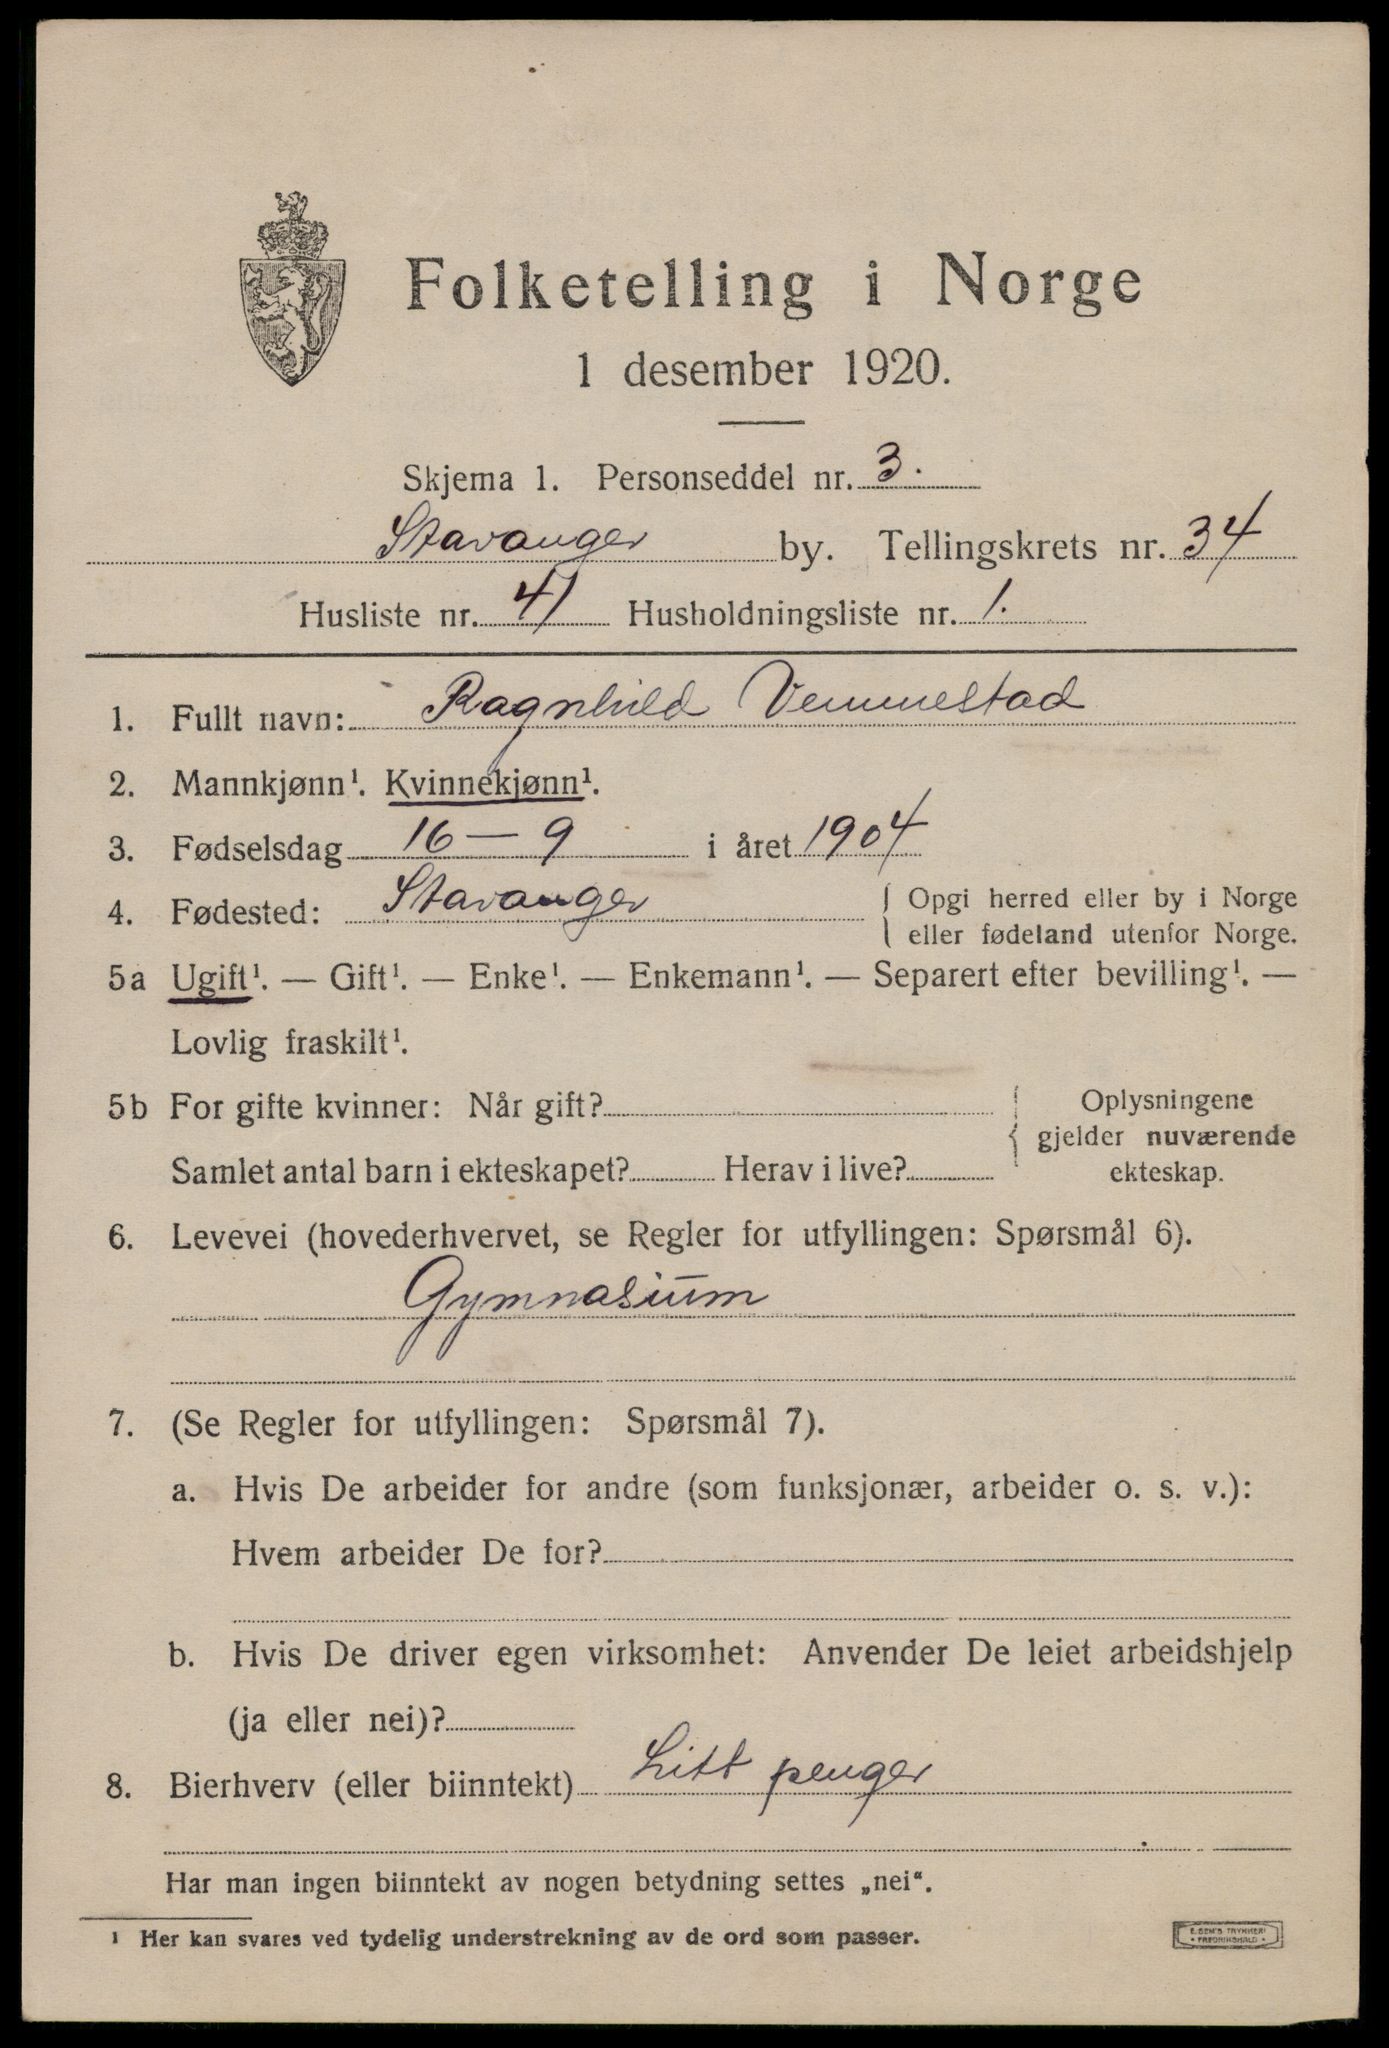 Folketelling i Norge
1 desember 1920.
Skjema 1. Personseddel nr. 3.
Stavanger by. Tellingskrets nr. 34
Husliste nr. 41 Husholdningsliste nr. 1.
1. Fullt navn: Ragnhild Vemmestad
2. Mannkjønn¹. Kvinnekjønn¹.
3. Fødselsdag 16 — 9 i året 1904
4. Fødested: Stavanger { Opgi herred eller by i Norge
eller fødeland utenfor Norge.
5a Ugift¹. — Gift¹. — Enke¹. — Enkemann¹. — Separert efter bevilling¹. —
Lovlig fraskilt¹.
5b For gifte kvinner: Når gift? { Oplysningene
gjelder nuværende
Samlet antal barn i ekteskapet? Herav i live? ekteskap.
6. Levevei (hovederhvervet, se Regler for utfyllingen: Spørsmål 6).
Gymnasium
7. (Se Regler for utfyllingen: Spørsmål 7).
a. Hvis De arbeider for andre (som funksjonær, arbeider o. s. v.):
Hvem arbeider De for?
b. Hvis De driver egen virksomhet: Anvender De leiet arbeidshjelp
(ja eller nei)?
8. Bierhverv (eller biinntekt) Litt penger
Har man ingen biinntekt av nogen betydning settes „nei“.
¹ Her kan svares ved tydelig understrekning av de ord som passer.
E. SEM'S TRYKKERI
• FREDRIKSHALD •